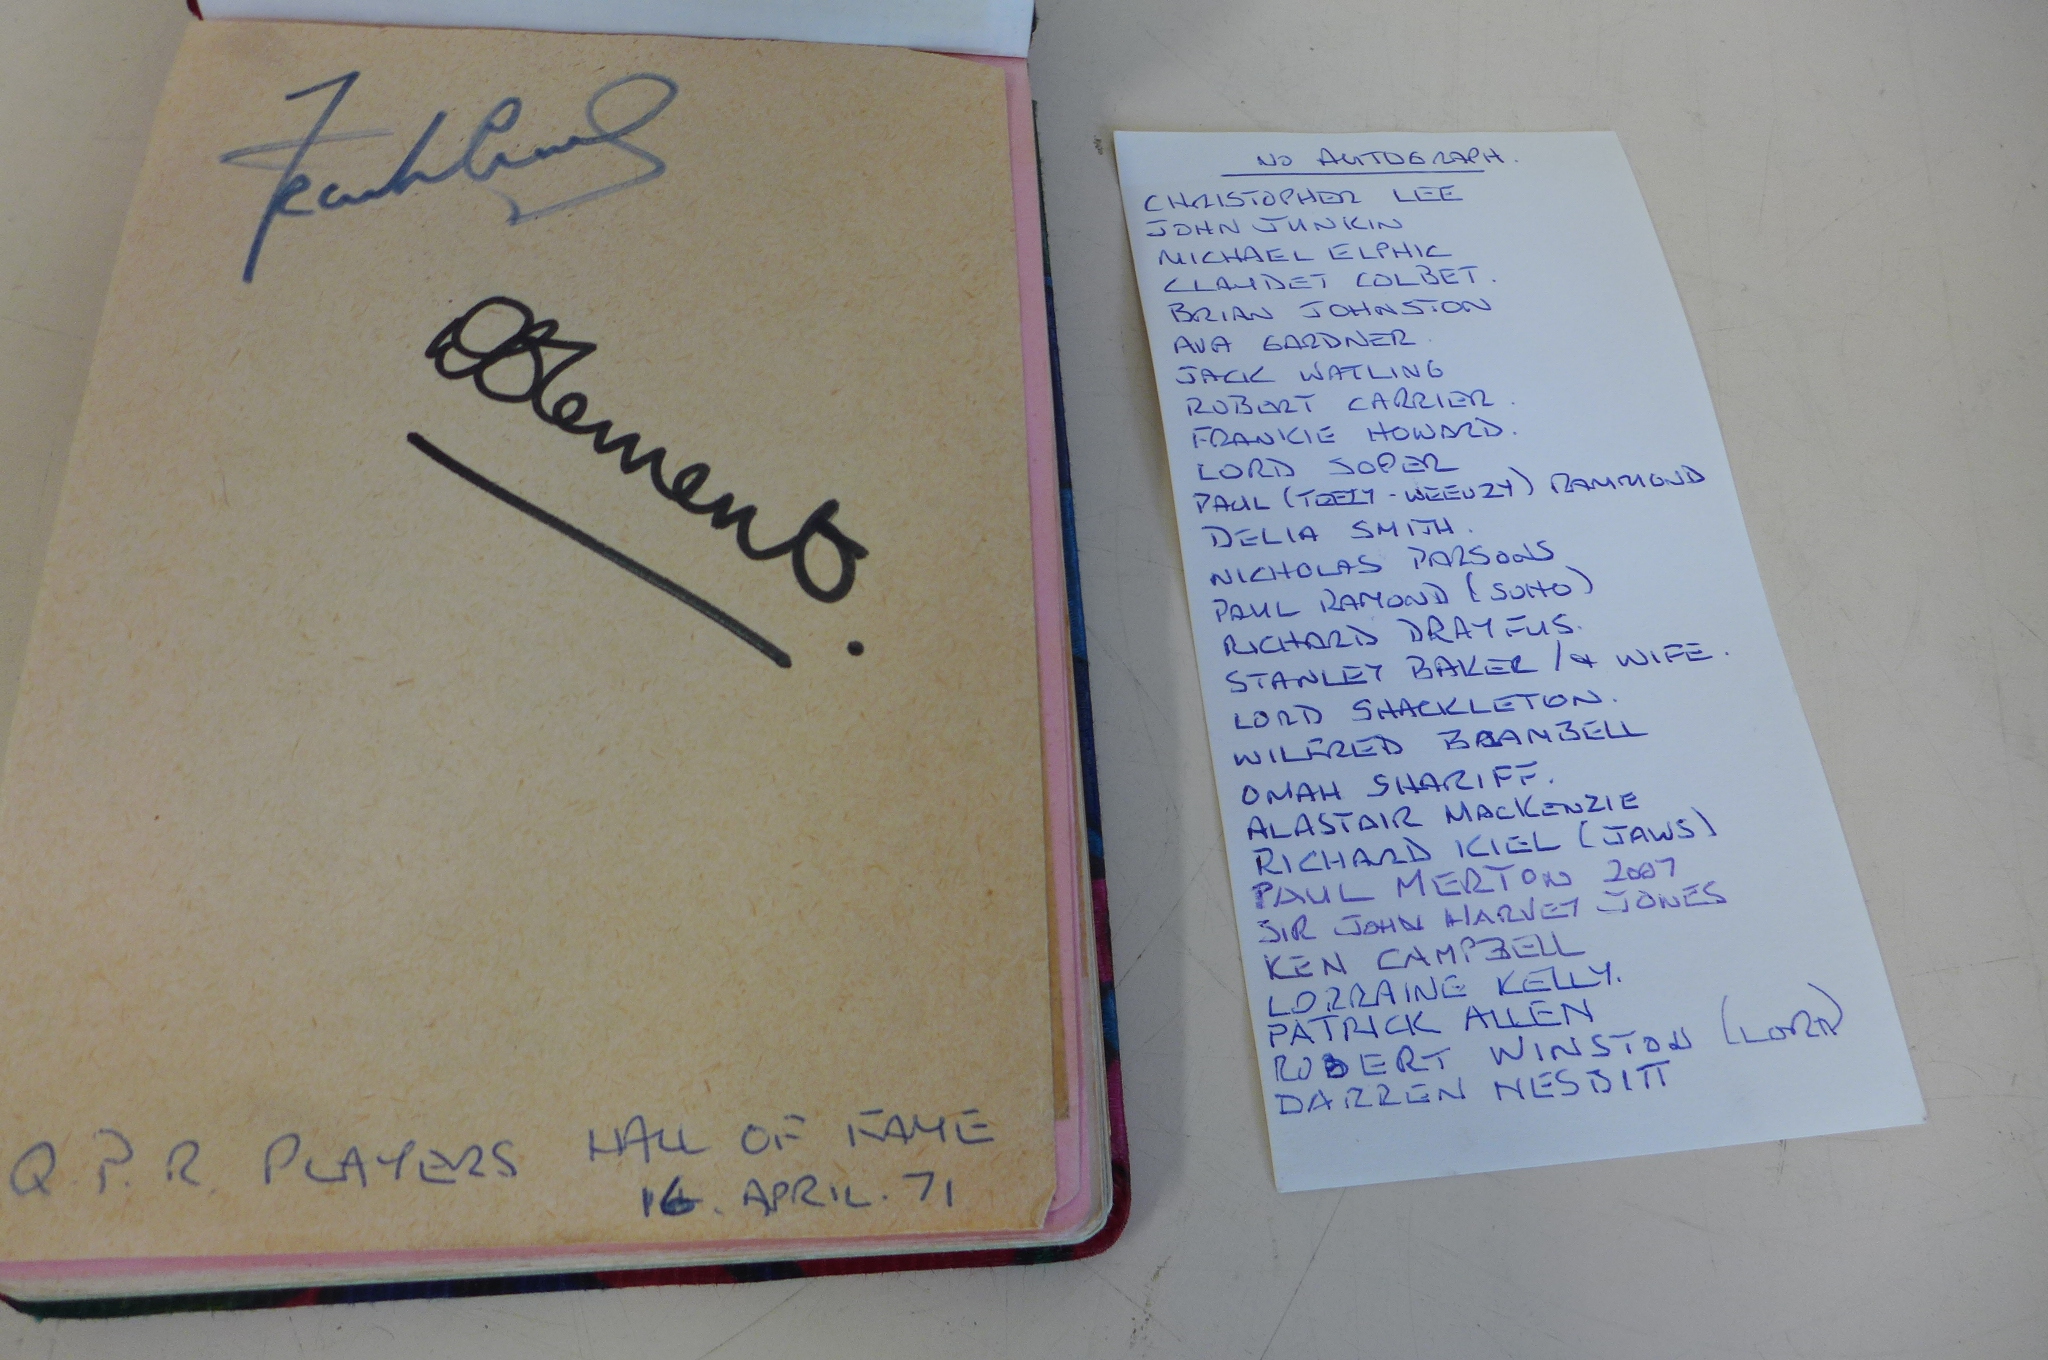 D Clement.
Q.P.R. PLAYERS HALL OF FAME
16. APRIL. 71
NO AUTOGRAPH.
CHRISTOPHER LEE
JOHN JUNKIN
MICHAEL ELPHIC
CLAUDET COLBET.
BRIAN JOHNSTON
AVA GARDNER.
JACK WATLING
ROBERT CARRIER.
FRANKIE HOWARD.
LORD SOPER
PAUL ( - ) RAMMOND
DELIA SMITH.
NICHOLAS PARSONS
PAUL RAMOND (SOHO)
RICHARD DRAYFUS.
STANLEY BAKER / & WIFE.
LORD SHACKLETON.
WILFRED BRAMBELL
OMAH SHARIFF.
ALASTAIR MACKENZIE
RICHARD KIEL (JAWS)
PAUL MERTON 2007
SIR JOHN HARVEY JONES
KEN CAMPBELL
LORRAINE KELLY.
PATRICK ALLEN
ROBERT WINSTON (LORD)
DARREN NESBITT